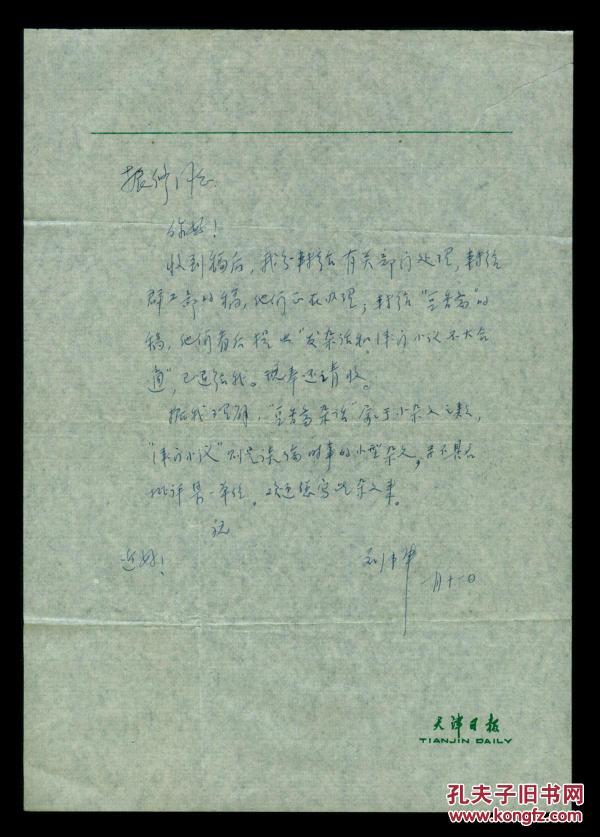 振修同志:
你好!
收到稿后,我分转给有关部门处理,转给
群工部的稿,他们正在办理;转给“豆书斋”的
稿,他们看后提出“发杂谈和津门小议不大合
适”,已退给我。现奉还请收。
据我理解,“豆书斋杂谈”属于小杂文之类,
“津门小议”则是谈论时事的小型杂文,并不具名
批评某一单位。欢迎您写些杂文来。
祝
近好!
月十一日
天津日报
TIANJIN DAILY
孔夫子旧书网
www.kongfz.com